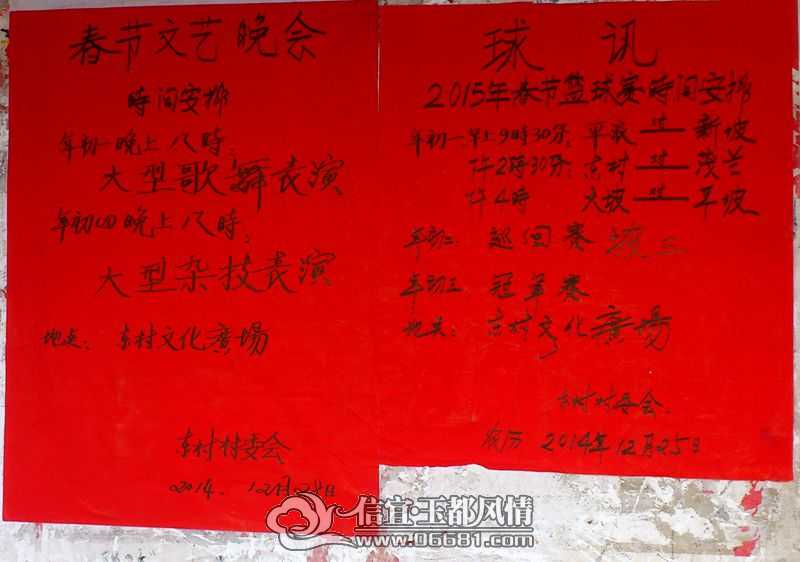 春节文艺晚会
時间安排
年初一晚上八時:
大型歌舞表演
年初四晚上八時:
大型杂技表演
地点: 东村文化廣場
东村村委会
2014.12月24日
球讯
2015年春节篮球赛時间安排
年初一早上9時30分: 平 对 新坡
下午2時30分: 东村 对 茂兰
下午4時 大坡 对 平坡
年初二: 巡回赛
年初三: 冠军赛
地点: 东村文化廣場
东村村委会.
农历 2014年12月25日
信宜玉都风情
www.06681.com